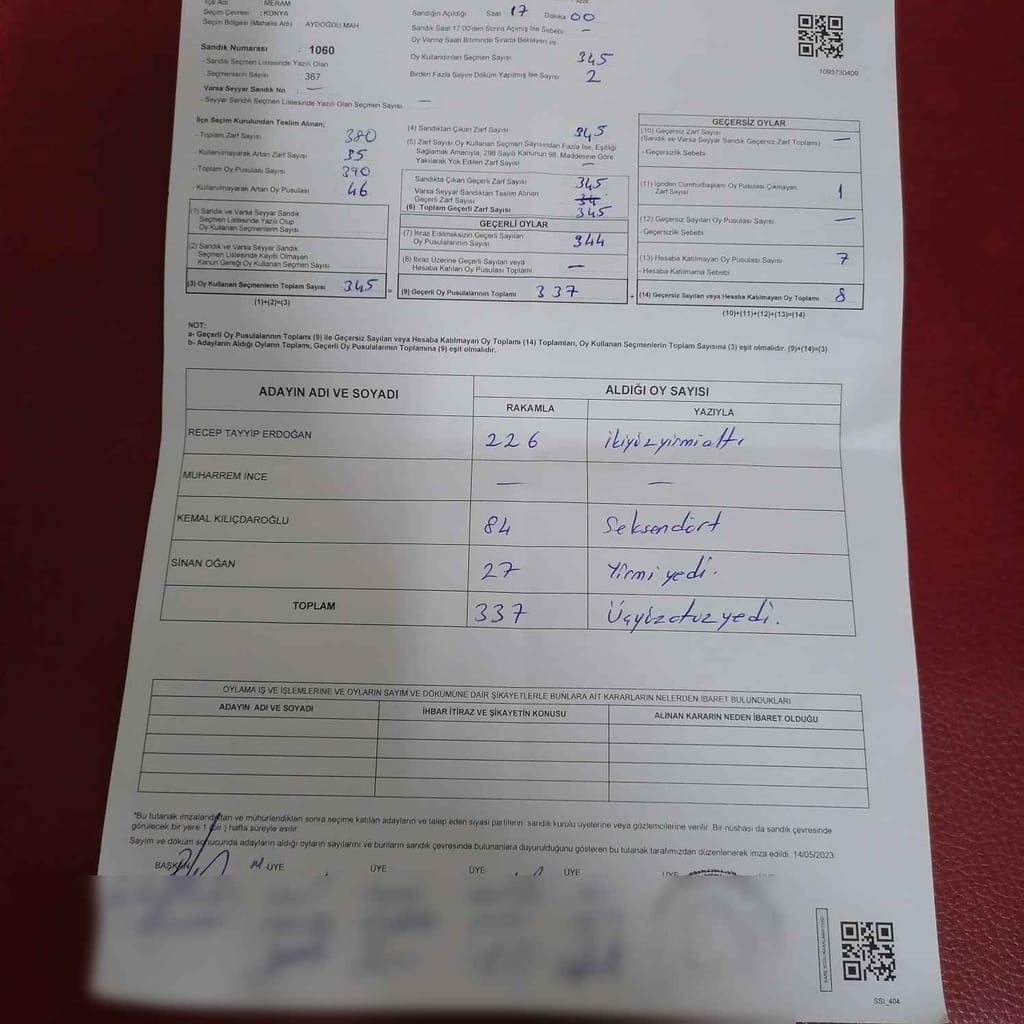 İlçe Adı : MERAM
Seçim Çevresi : KONYA
Seçim Bölgesi (Mahalle Adı) AYDOĞDU MAH
Sandık Numarası : 1060
- Sandık Seçmen Listesinde Yazılı Olan
Seçmenlerin Sayısı : 367
Varsa Seyyar Sandık No : —
- Seyyar Sandık Seçmen Listesinde Yazılı Olan Seçmen Sayısı : —
Sandığın Açıldığı Saat 17 Dakika 00
Sandık Saat 17.00'den Sonra Açılmış İse Sebebi —
Oy Verme Saati Bitiminde Sırada Bekleyen ve
Oy Kullandırılan Seçmen Sayısı 345
Birden Fazla Sayım Döküm Yapılmış İse Sayısı 2
1093730409
İlçe Seçim Kurulundan Teslim Alınan;
- Toplam Zarf Sayısı 380
- Kullanılmayarak Artan Zarf Sayısı 35
- Toplam Oy Pusulası Sayısı 390
- Kullanılmayarak Artan Oy Pusulası 46
(1) Sandık ve Varsa Seyyar Sandık
Seçmen Listesinde Yazılı Olup
Oy Kullanan Seçmenlerin Sayısı
(2) Sandık ve Varsa Seyyar Sandık
Seçmen Listesinde Kayıtlı Olmayan
Kanun Gereği Oy Kullanan Seçmen Sayısı
(3) Oy Kullanan Seçmenlerin Toplam Sayısı 345
(1)+(2)=(3)
(4) Sandıktan Çıkan Zarf Sayısı 345
(5) Zarf Sayısı Oy Kullanan Seçmen Sayısından Fazla İse, Eşitliği
Sağlamak Amacıyla; 298 Sayılı Kanunun 98. Maddesine Göre
Yakılarak Yok Edilen Zarf Sayısı —
Sandıkta Çıkan Geçerli Zarf Sayısı 345
Varsa Seyyar Sandıktan Teslim Alınan
Geçerli Zarf Sayısı
(6) Toplam Geçerli Zarf Sayısı 345
GEÇERLİ OYLAR
(7) İtiraz Edilmeksizin Geçerli Sayılan
Oy Pusulalarının Sayısı 344
(8) İtiraz Üzerine Geçerli Sayılan veya
Hesaba Katılan Oy Pusulası Toplamı —
= (9) Geçerli Oy Pusulalarının Toplamı 337
GEÇERSİZ OYLAR
(10) Geçersiz Zarf Sayısı
(Sandık ve Varsa Seyyar Sandık Geçersiz Zarf Toplamı) —
- Geçersizlik Sebebi
(11) İçinden Cumhurbaşkanı Oy Pusulası Çıkmayan
Zarf Sayısı 1
(12) Geçersiz Sayılan Oy Pusulası Sayısı —
- Geçersizlik Sebebi
(13) Hesaba Katılmayan Oy Pusulası Sayısı 7
- Hesaba Katılmama Sebebi
+ (14) Geçersiz Sayılan veya Hesaba Katılmayan Oy Toplamı 8
(10)+(11)+(12)+(13)=(14)
NOT:
a- Geçerli Oy Pusulalarının Toplamı (9) ile Geçersiz Sayılan veya Hesaba Katılmayan Oy Toplamı (14) Toplamları, Oy Kullanan Seçmenlerin Toplam Sayısına (3) eşit olmalıdır. (9)+(14)=(3)
b- Adayların Aldığı Oyların Toplamı, Geçerli Oy Pusulalarının Toplamına (9) eşit olmalıdır.
ADAYIN ADI VE SOYADI
ALDIĞI OY SAYISI
RAKAMLA YAZIYLA
RECEP TAYYİP ERDOĞAN 226 ikiyüzyirmialtı
MUHARREM İNCE — —
KEMAL KILIÇDAROĞLU 84 Seksendört
SİNAN OĞAN 27 Yirmiyedi.
TOPLAM 337 Üçyüzotuzyedi.
OYLAMA İŞ VE İŞLEMLERİNE VE OYLARIN SAYIM VE DÖKÜMÜNE DAİR ŞİKAYETLERLE BUNLARA AİT KARARLARIN NELERDEN İBARET BULUNDUKLARI
ADAYIN ADI VE SOYADI İHBAR İTİRAZ VE ŞİKAYETİN KONUSU ALINAN KARARIN NEDEN İBARET OLDUĞU
"Bu tutanak imzalandıktan ve mühürlendikten sonra seçime katılan adayların ve talep eden siyasi partilerin sandık kurulu üyelerine veya gözlemcilerine verilir. Bir nüshası da sandık çevresinde
görülecek bir yere 1 (bir ) hafta süreyle asılır.
Sayım ve döküm sonucunda adayların aldığı oyların sayılarını ve bunların sandık çevresinde bulunanlara duyurulduğunu gösteren bu tutanak tarafımızdan düzenlenerek imza edildi. 14/05/2023
BAŞKAN ÜYE ÜYE ÜYE ÜYE ÜYE ÜYE
SSI_404